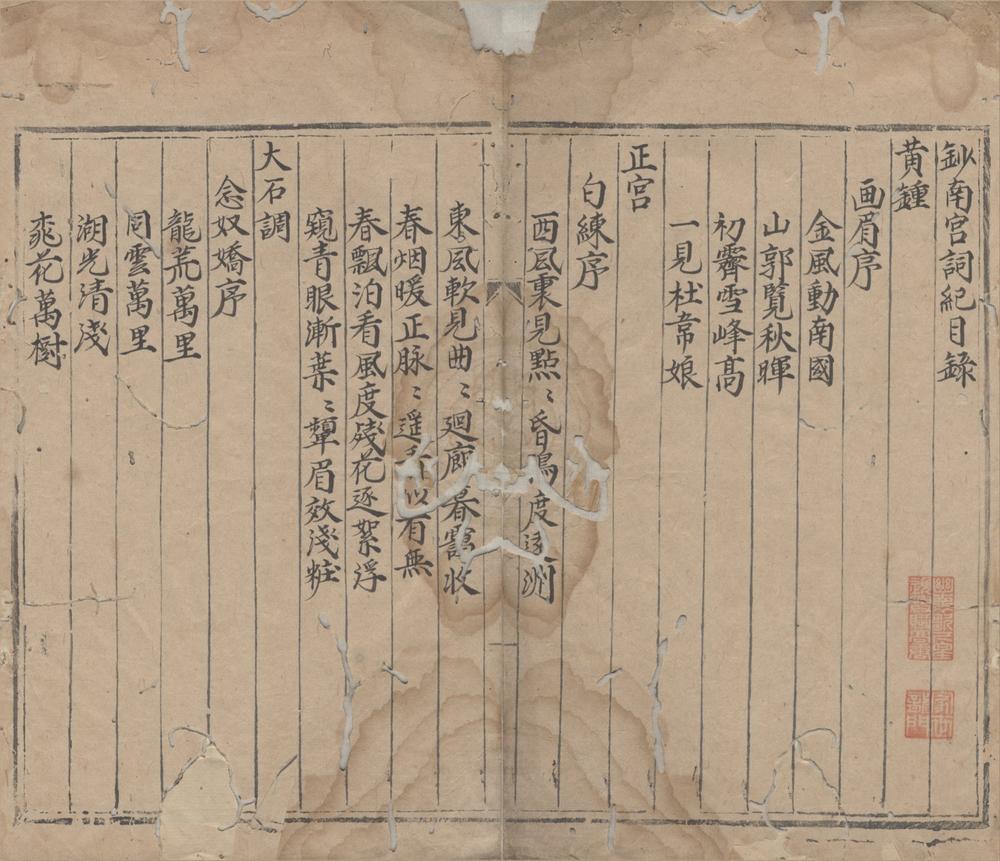 鈔南宮詞紀目録
黄鍾
画眉序
金風動南國
山郭覧秋暉
初霽雪峰髙
一見杜韋娘
正宮
白練序
西風裏見㸃〻昏鴉度遠洲
東風軟見曲〻廻廊暮靄收
春烟暖正脉〻遥 有無
春飄泊看風度残花逐絮浮
窺青眼漸葉〻顰眉效淺粧
大石調
念奴嬌序
龍荒萬里
同雲萬里
湖光清淺
桃花萬樹